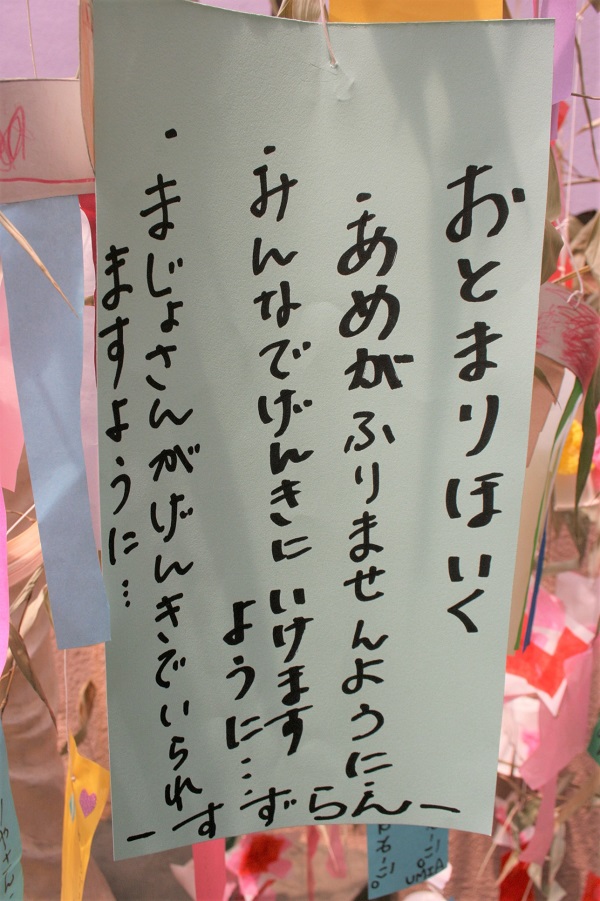 おとまりほいく
・あめがふりませんように…
・みんなでげんきにいけます
ように…
・まじょさんがげんきでいられ
ますように…
ーすずらんー